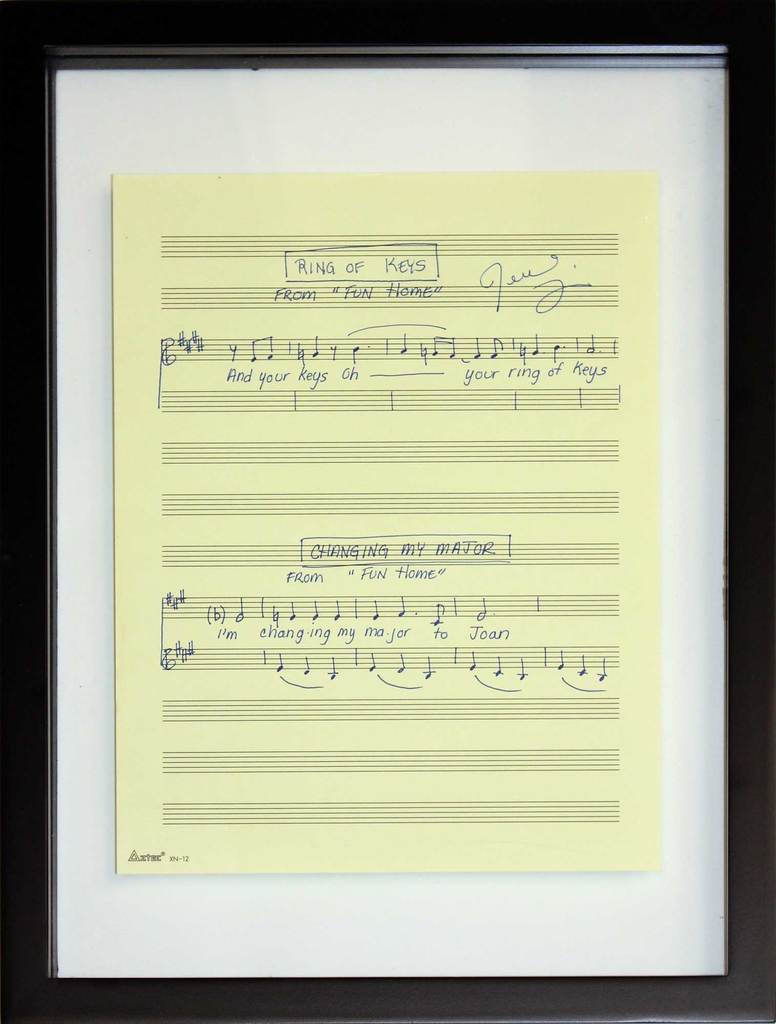 RING OF KEYS
FROM "FUN HOME"
And your keys Oh your ring of keys
CHANGING MY MAJOR
FROM "FUN HOME"
(b)
I'm chang-ing my ma-jor to Joan
AZTEC® XN-12